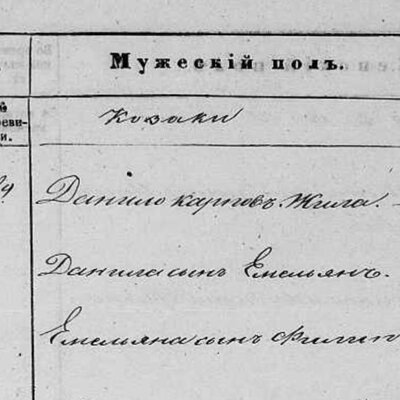 Мужескій полъ.
й
реви-
и.
Козаки
9
Данило карповъ Жила.
Данила сынъ Емельянъ.
Емельяна сынъ Филип